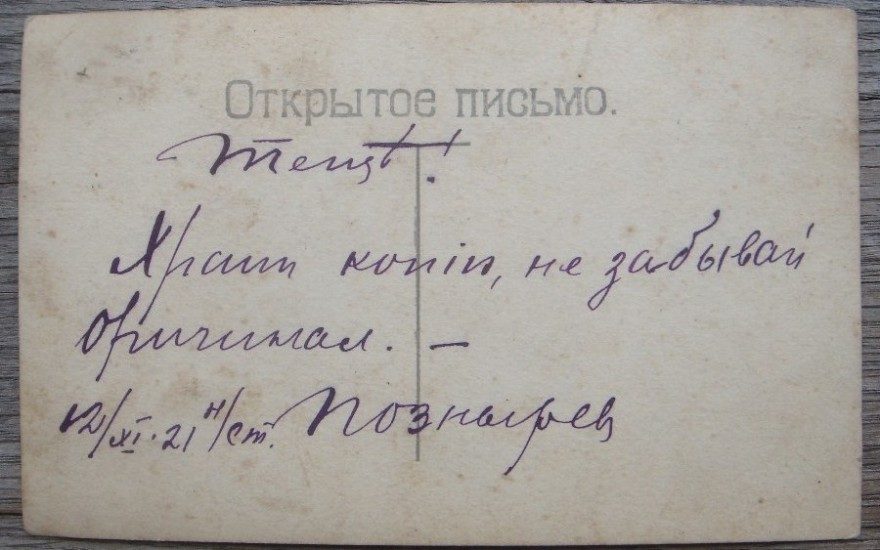 Открытое письмо.
Тещѣ!
Храни копію, не забывай
Оригинал. —
12/XI. 21 н/ст.